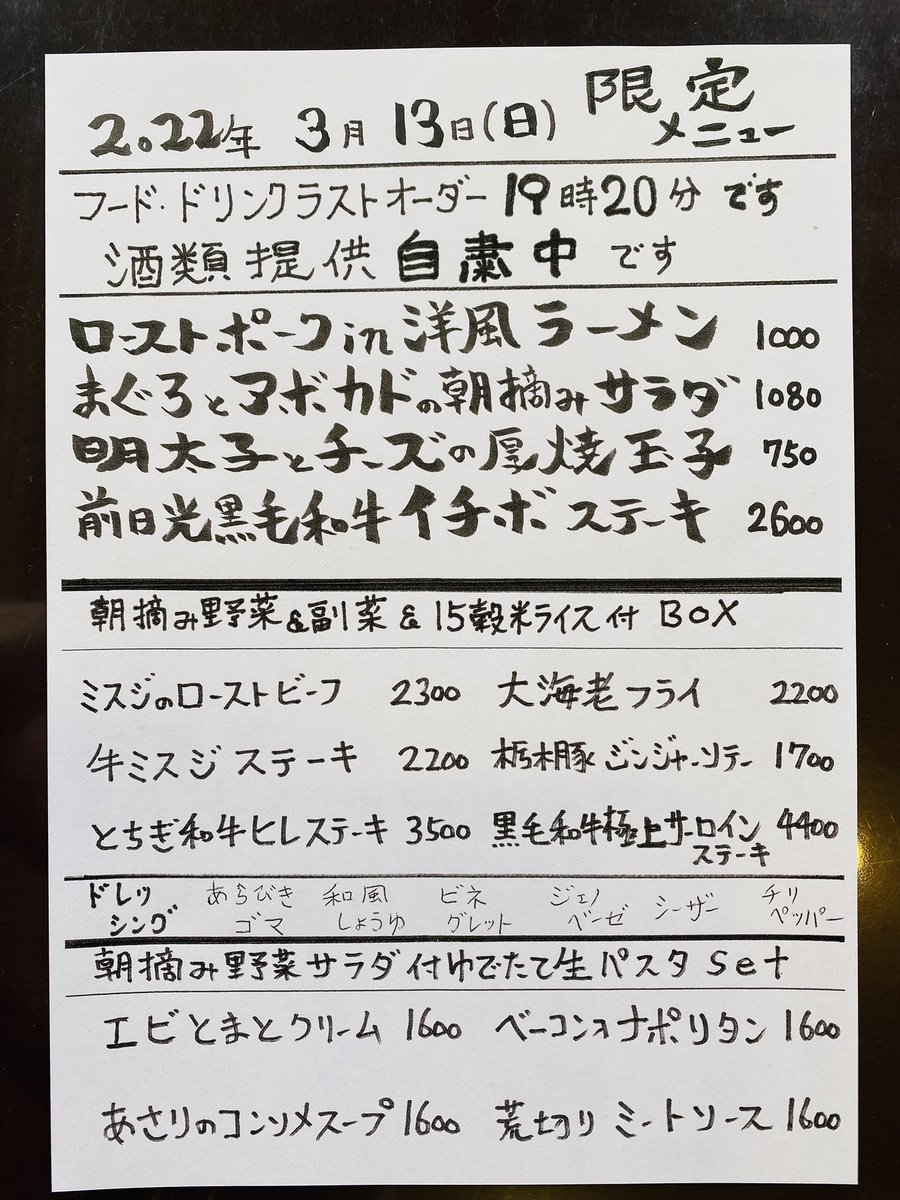 2022年 3月 13日(日) 限定メニュー
フード・ドリンクラストオーダー 19時20分 です
酒類提供 自粛中 です
ローストポーク in 洋風ラーメン 1000
まぐろとアボカドの朝摘みサラダ 1080
明太子とチーズの厚焼玉子 750
前日光黒毛和牛イチボステーキ 2600
朝摘み野菜&副菜&15穀米ライス付 BOX
ミスジのローストビーフ 2300 大海老フライ 2200
牛ミスジステーキ 2200 栃木豚ジンジャーソテー 1700
とちぎ和牛ヒレステーキ 3500 黒毛和牛極上サーロインステーキ 4400
ドレッシング あらびきゴマ 和風しょうゆ ビネグレット ジェノベーゼ シーザー チリペッパー
朝摘み野菜サラダ付ゆでたて生パスタ Set
エビとまとクリーム 1600 ベーコンオナポリタン 1600
あさりのコンソメスープ 1600 荒切りミートソース 1600